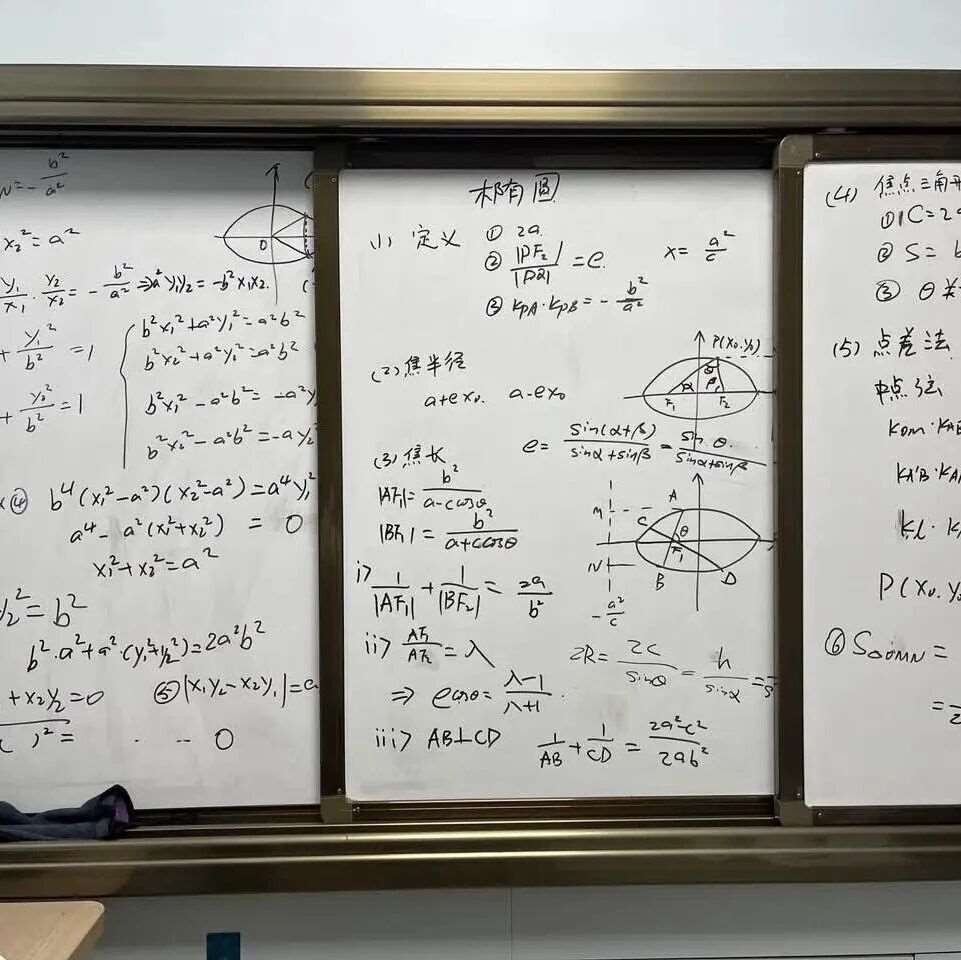 = -b²/a²
x₂² = a²
y₁/x₁ · y₂/x₂ = -b²/a² ⇒ a²y₁y₂ = -b²x₁x₂.
+ y₁²/b² = 1
+ y₂²/b² = 1
b²x₁² + a²y₁² = a²b²
b²x₂² + a²y₂² = a²b²
b²x₁² - a²b² = -a²y
b²x₂² - a²b² = -ay₂
④ b⁴(x₁²-a²)(x₂²-a²) = a⁴y₁²
a⁴ - a²(x₁²+x₂²) = 0
x₁²+x₂² = a²
y₂² = b²
b²·a²+a²·(y₁²+y₂²) = 2a²b²
+ x₂y₂ = 0
⑤ |x₁y₂-x₂y₁| = a
( )² = 0
0
椭圆
(1) 定义 ① 2a
② |PF₂|/|PQ| = e.
x = a²/c
③ kPA·kPB = -b²/a²
(2) 焦半径
a+ex₀ a-ex₀
P(x₀,y₀)
θ
α β
F₁ F₂
e = sin(α+β)/(sinα+sinβ) = sinθ/(sinα+sinβ)
(3) 焦长
|AF₁| = b²/(a-cosθ)
|BF₁| = b²/(a+ccosθ)
M C A
θ
F₁
N B D
-a²/c
i> 1/|AF₁| + 1/|BF₂| = 2a/b²
ii> AF₁/AF₂ = λ
2R = 2c/sinθ = h/sinα =
⇒ ecosθ = (λ-1)/(λ+1).
iii> AB⊥CD 1/AB + 1/CD = (2a²-c²)/2ab²
(4) 焦点三角形
① C = 2a
② S = b
③ θ
(5) 点差法
中点弦
kOM·kAB
kA'B·kA
kl·k
P(x₀,y₀
⑥ S△OMN =
=